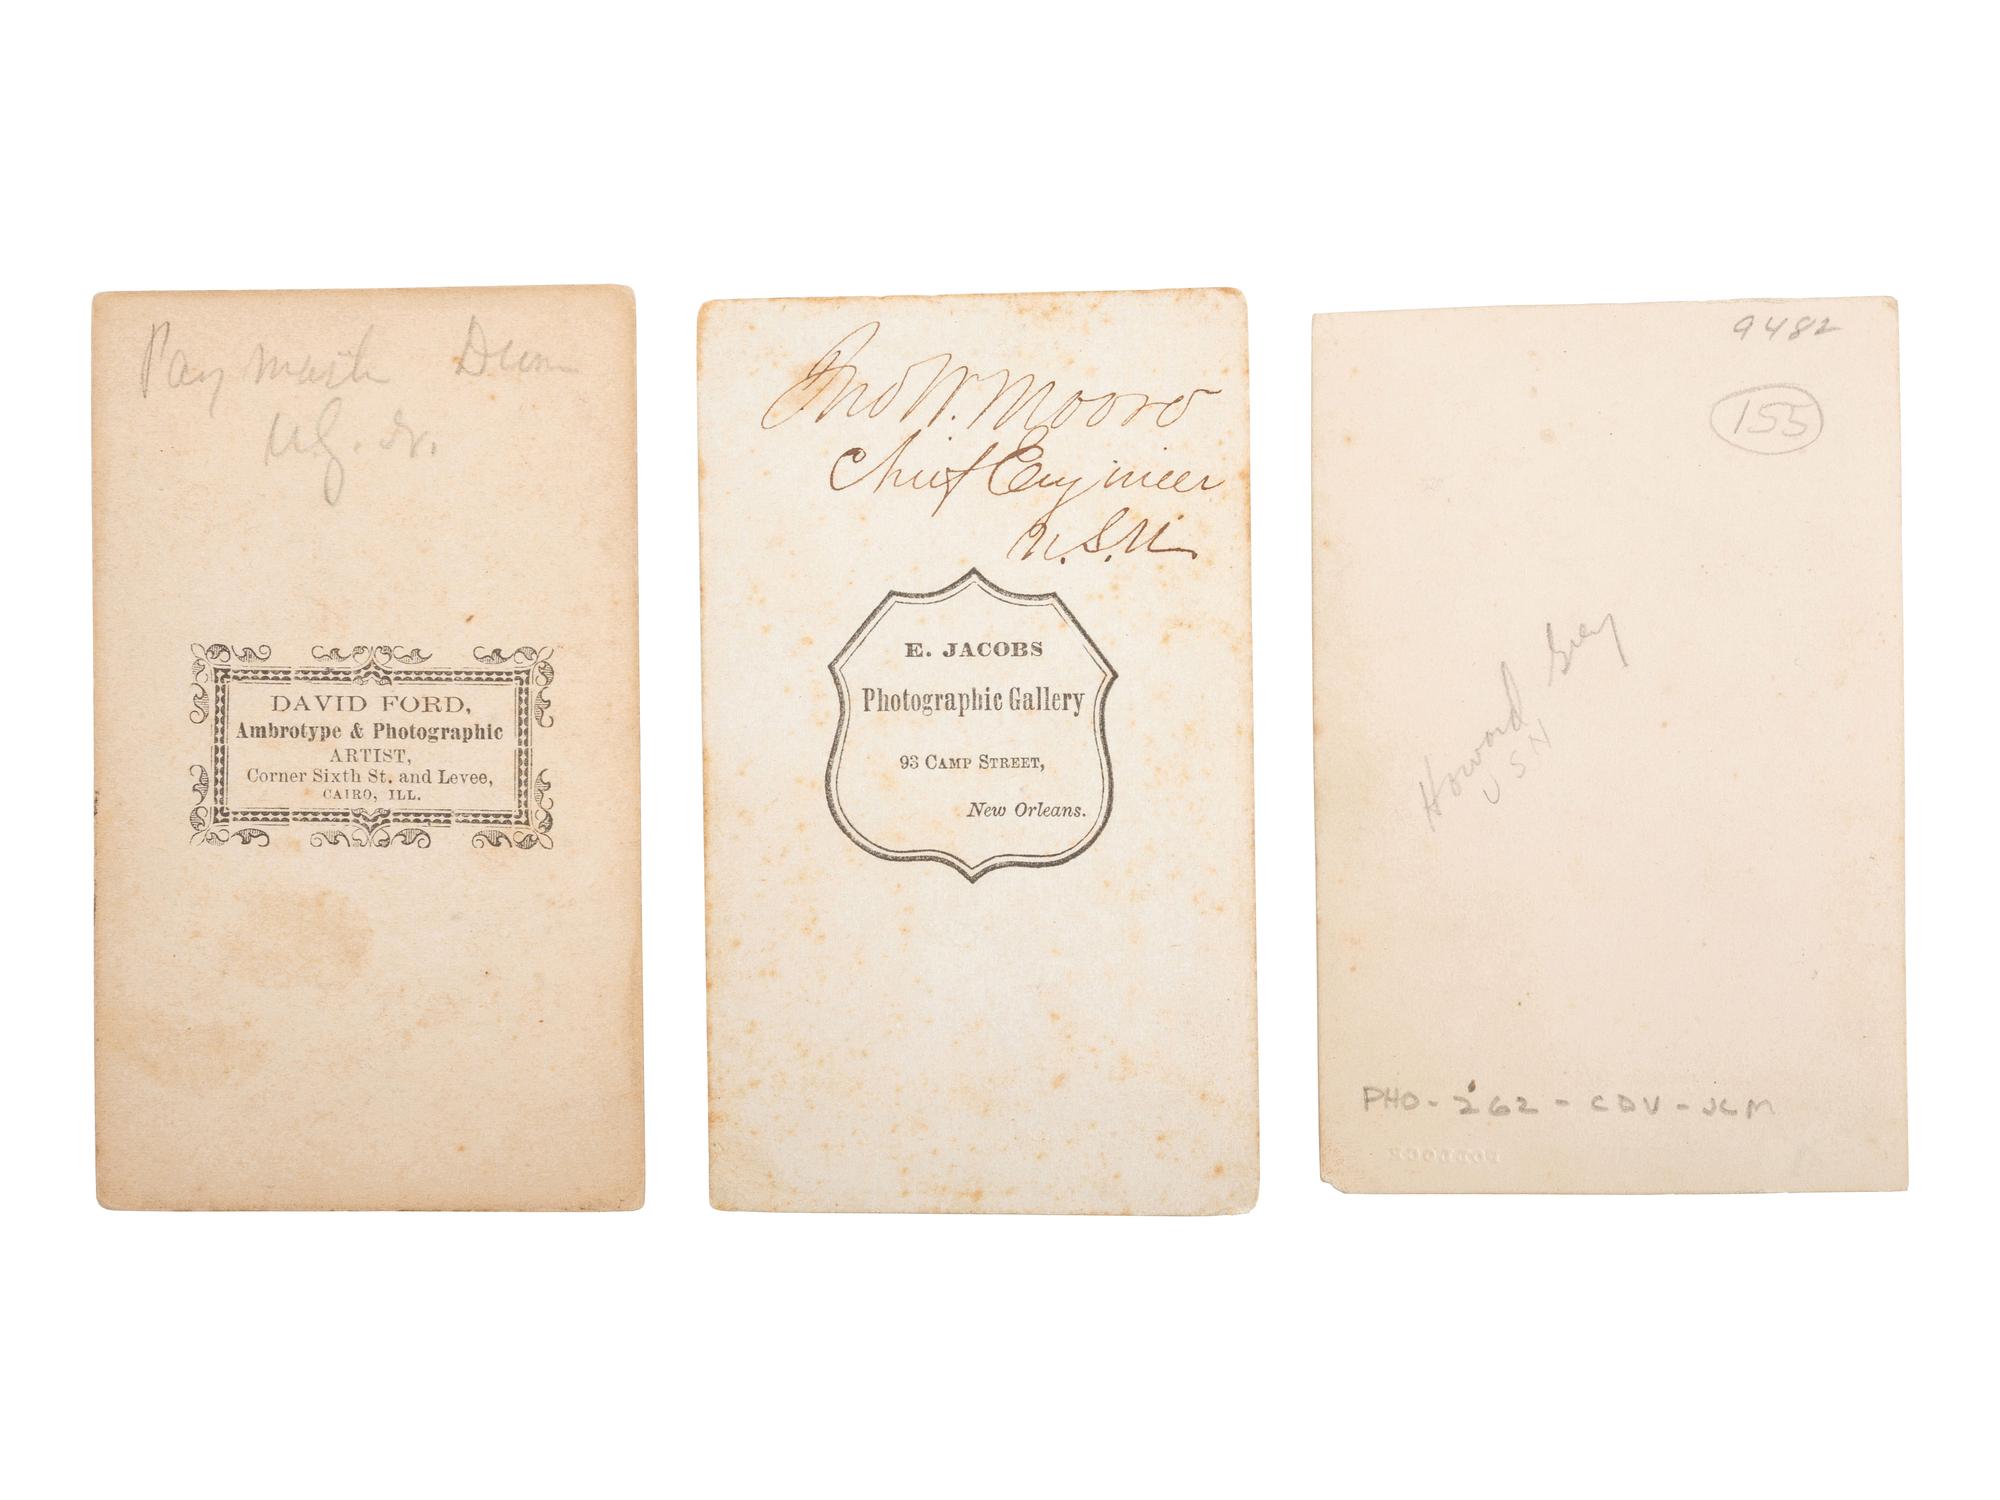 Pay Mast Dunn
DAVID FORD,
Ambrotype & Photographic
ARTIST,
Corner Sixth St. and Levee,
CAIRO, ILL.
Jno W. Moore
Chief Engineer
U.S.N.
E. JACOBS
Photographic Gallery
93 CAMP STREET,
New Orleans.
9482
155
Howard Grey
USN
PHO-262-CDV-JLM